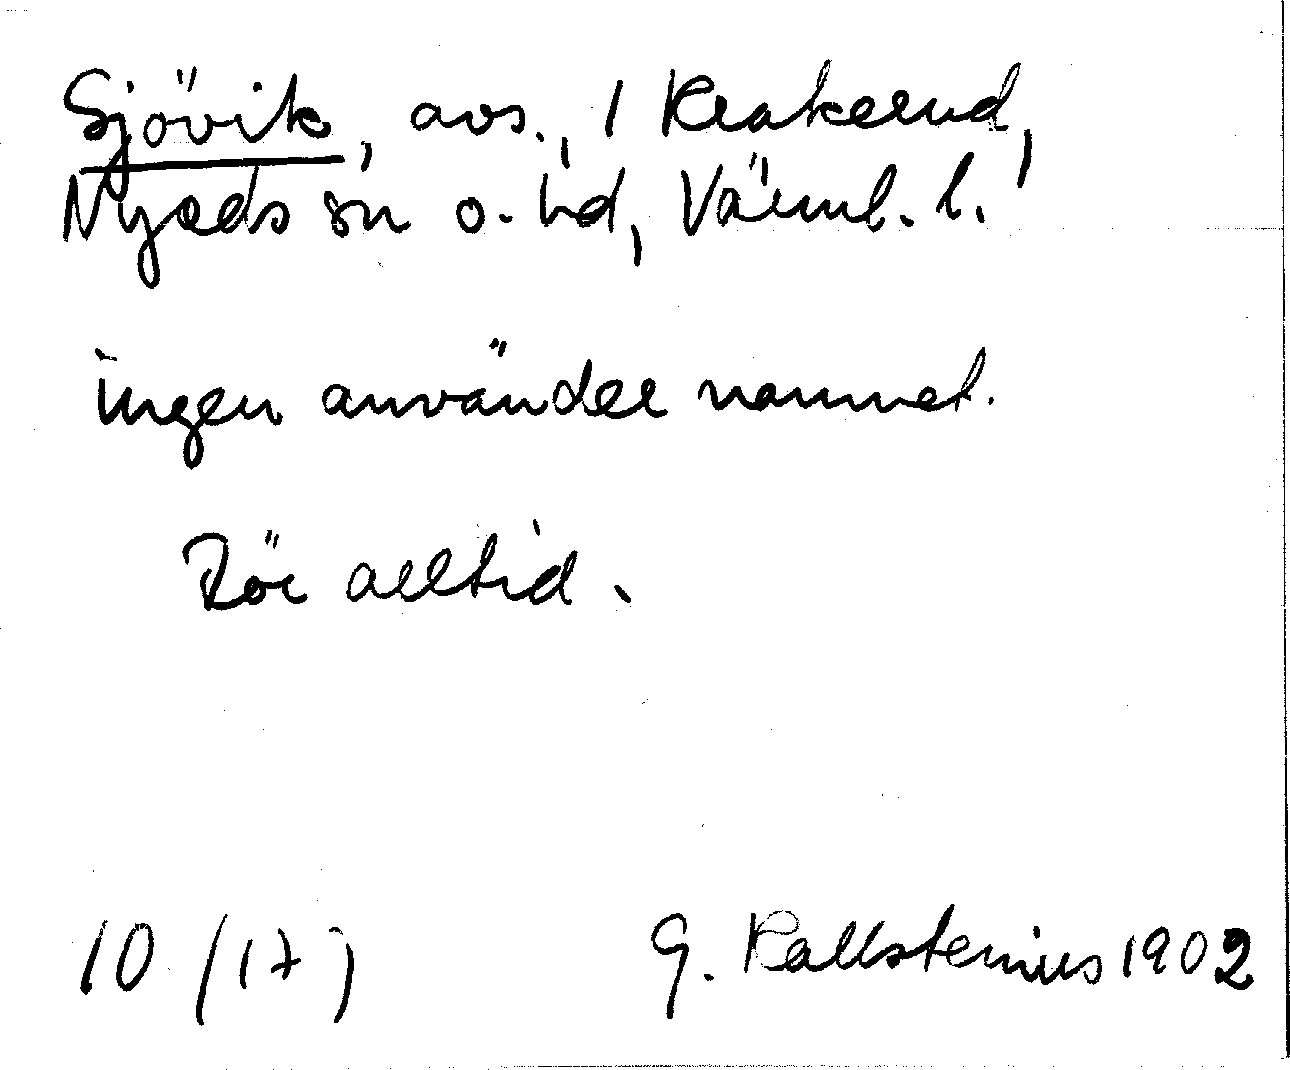 Sjövik, avs., / Krakerud,
Nyeds sn o. hd, Värml. l.
ingen använder namnet.
Rör alltid.
10 (17) G. Kallstenius 1902